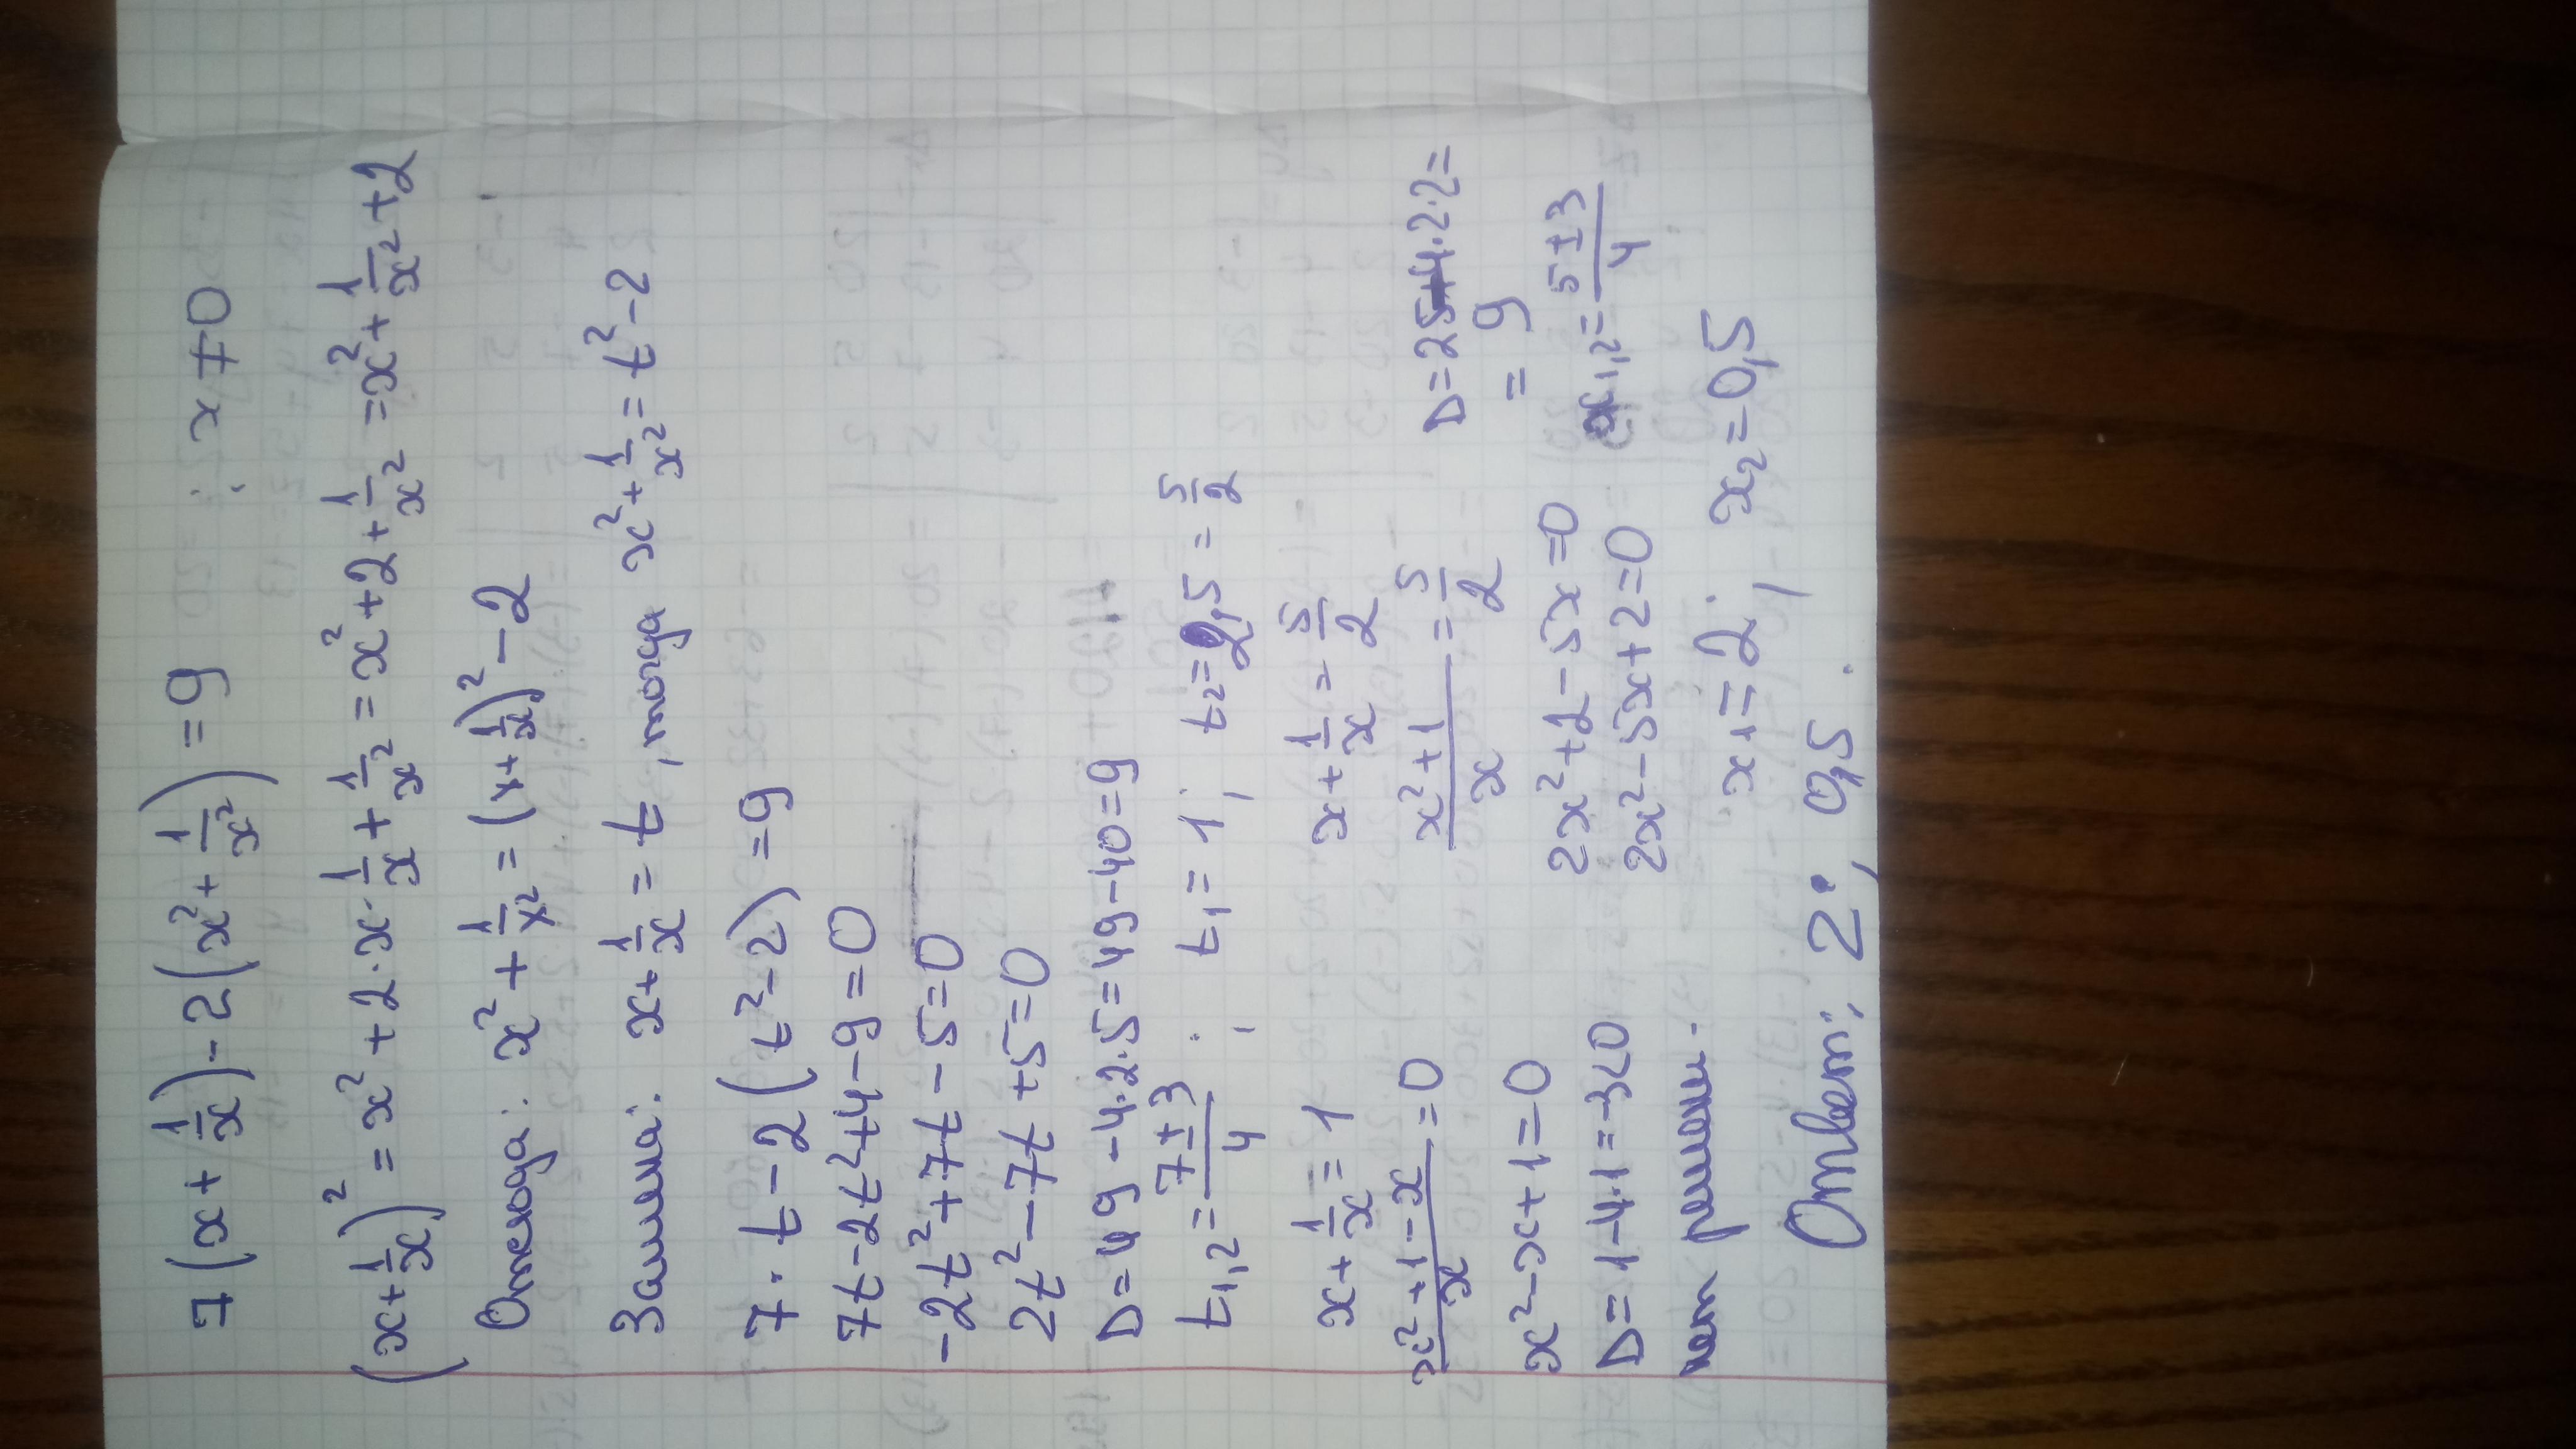 7(x+1/x)-2(x²+1/x²)=9 ; x≠0
(x+1/x)²=x²+2·x·1/x+1/x²=x²+2+1/x²=x²+1/x²+2
Отсюда: x²+1/x²=(x+1/x)²-2
Замена: x+1/x=t, тогда x²+1/x²=t²-2
7·t-2(t²-2)=9
7t-2t²+4-9=0
-2t²+7t-5=0
2t²-7t+5=0
D=49-4·2·5=49-40=9
t1,2=7±3/4 ; t1=1; t2=2,5=5/2
x+1/x=1
x²+1-x/x=0
x²-x+1=0
D=1-4·1=-3<0
нет решени.
x+1/x=5/2
x²+1/x=5/2
2x²+2-5x=0
2x²-5x+2=0
D=25-4·2·2=
=9
x1,2=5±3/4
x1=2; x2=0,5
Ответ: 2; 0,5.